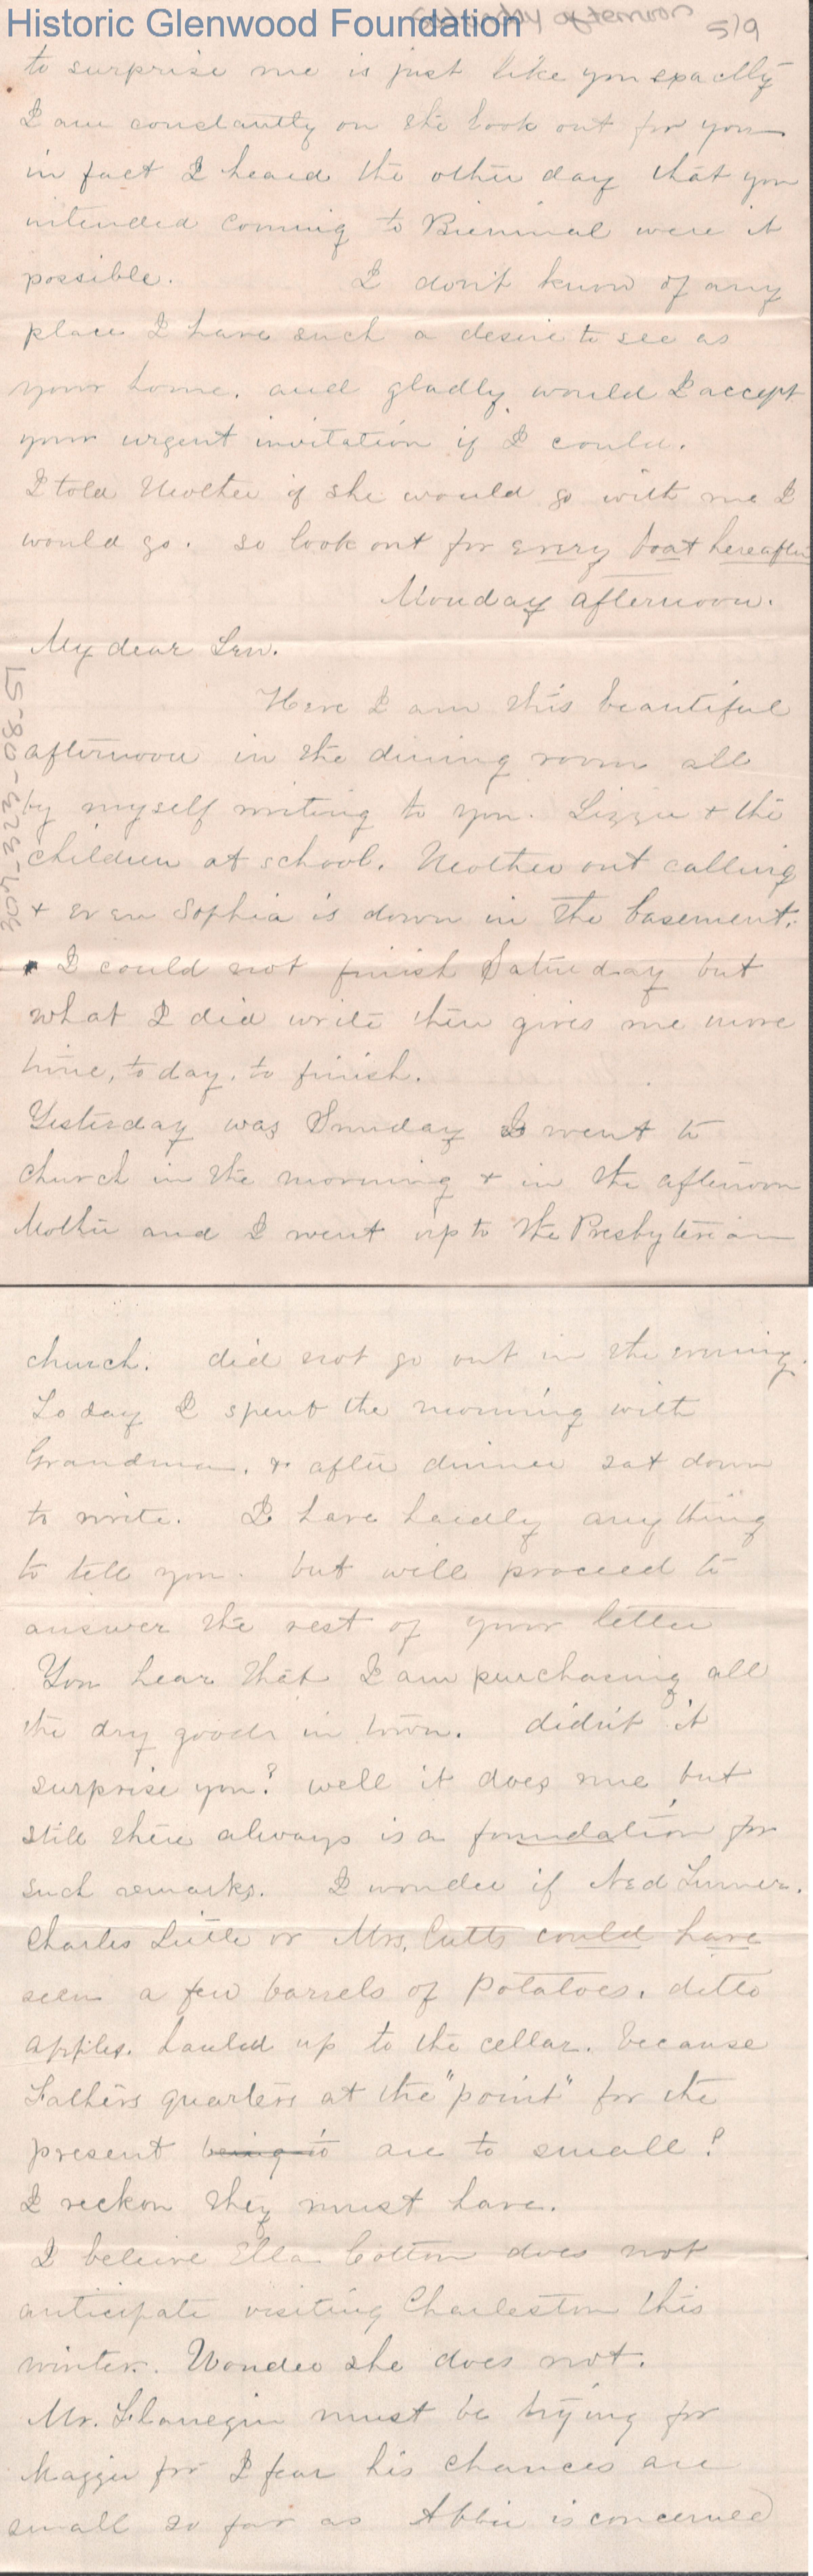 Historic Glenwood Foundation
Saturday afternoon
5/9
to surprise me is just like you exactly
I am constantly on the look out for you
in fact I heard the other day that you
intended coming to Biennial were it
possible. I don't know of any
place I have such a desire to see as
your home. and gladly would I accept
your urgent invitation if I could.
I told Mother if she would go with me I
would go. so look out for every boat hereafter
Monday afternoon.
My dear Lew.
Here I am this beautiful
afternoon in the dining room all
by myself writing to you. Lizzie + the
children at school. Mother out calling
+ even Sophia is down in the basement.
I could not finish Saturday but
what I did write then gives me more
time, today, to finish.
Yesterday was Sunday I went to
church in the morning + in the afternoon
Mother and I went up to the Presbyterian
church. did not go out in the evening.
To day I spent the morning with
Grandma. + after dinner sat down
to write. I have hardly any thing
to tell you. but will proceed to
answer the rest of your letter
You hear that I am purchasing all
the dry goods in town. didn't it
surprise you? well it does me, but
still there always is a foundation for
such remarks. I wonder if Ned Turner.
Charles Little or Mrs. Cutts could have
seen a few barrels of potatoes. ditto
apples. hauled up to the cellar. because
Fathers quarters at the "point" for the
present being to are to small?
I reckon they must have.
I beleive Ella Cotton does not
anticipate visiting Charleston this
winter. Wonder she does not.
Mr. Flanegin must be trying for
Maggie for I fear his chances are
small so far as Abbie is concerned